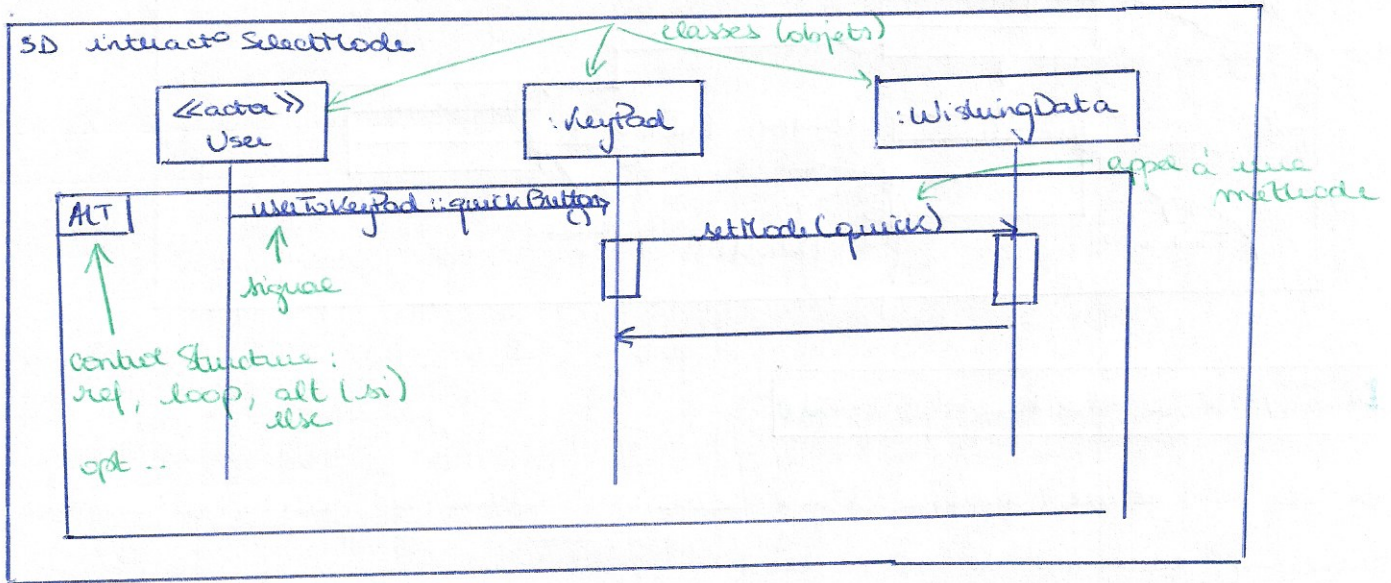 SD interact° SelectMode
classes (objets)
<<actor>>
User
:KeyPad
:WishingData
appel à une
méthode
ALT
userToKeyPad::quickButton()
setMode(quick)
signal
control Structure :
ref, loop, alt (si)
else
opt ..